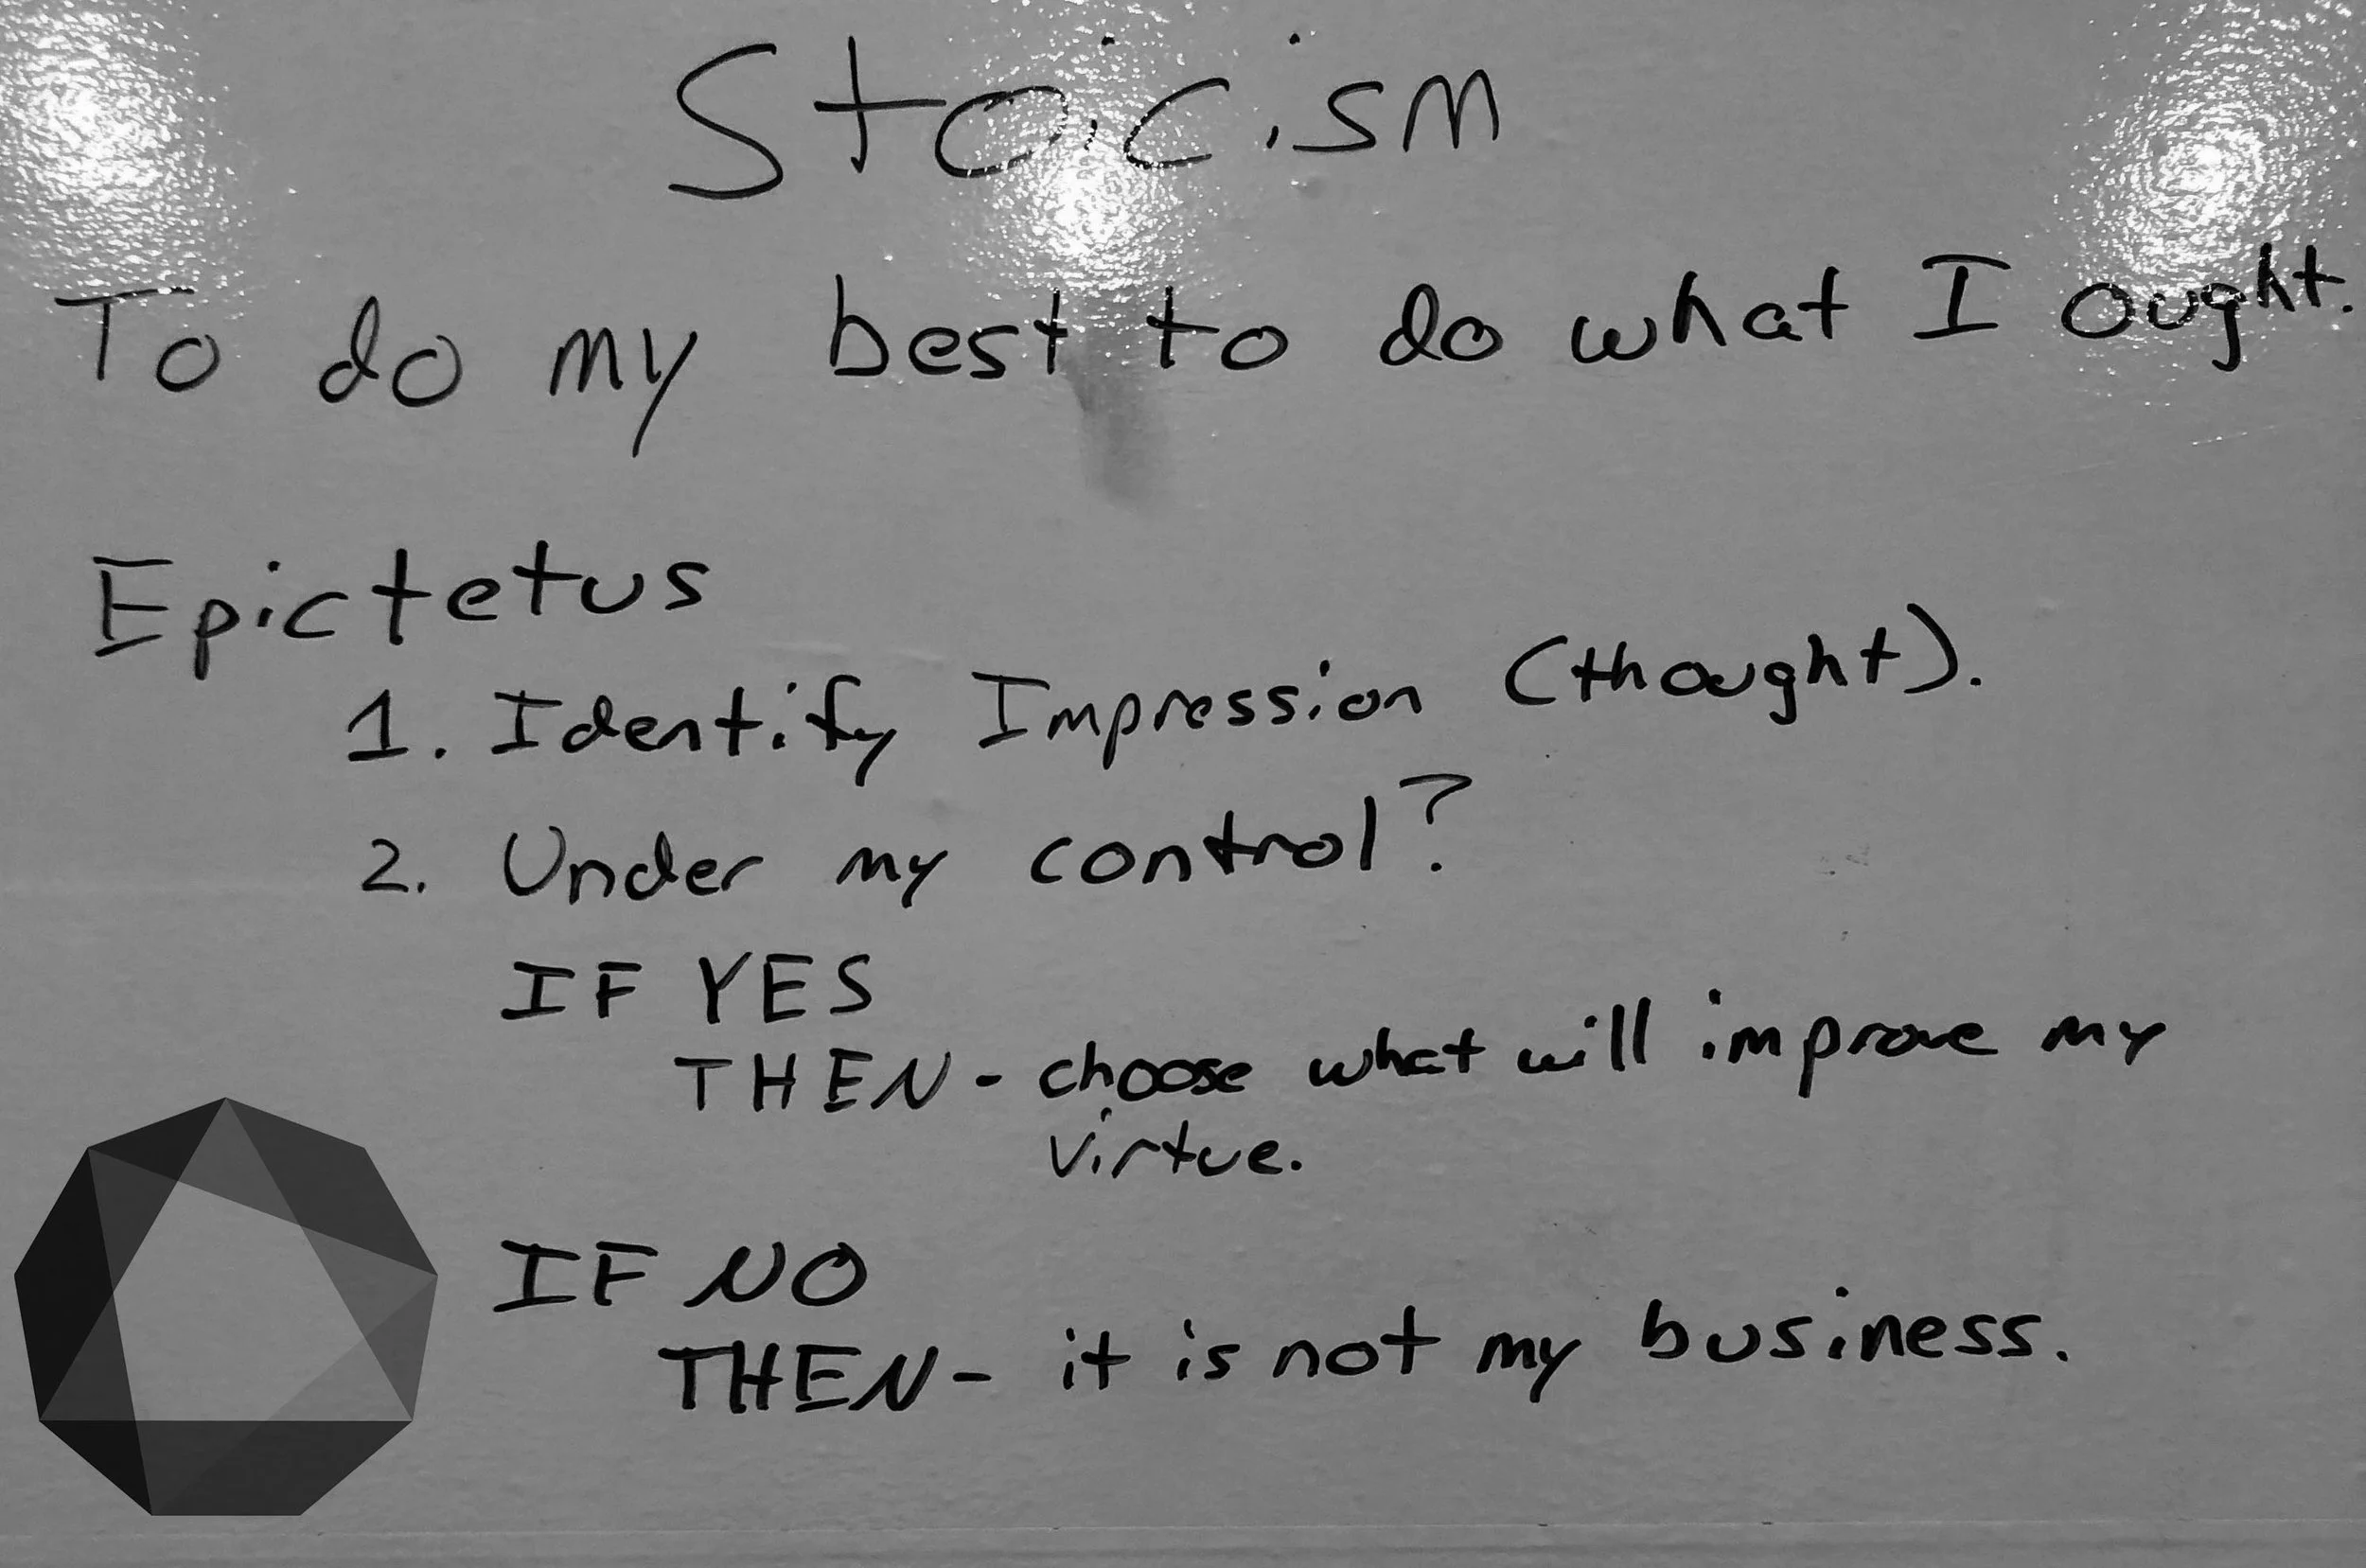 Stoicism
To do my best to do what I ought.
Epictetus
1. Identify Impression (thought).
2. Under my control?
IF YES
THEN - choose what will improve my
virtue.
IF NO
THEN - it is not my business.